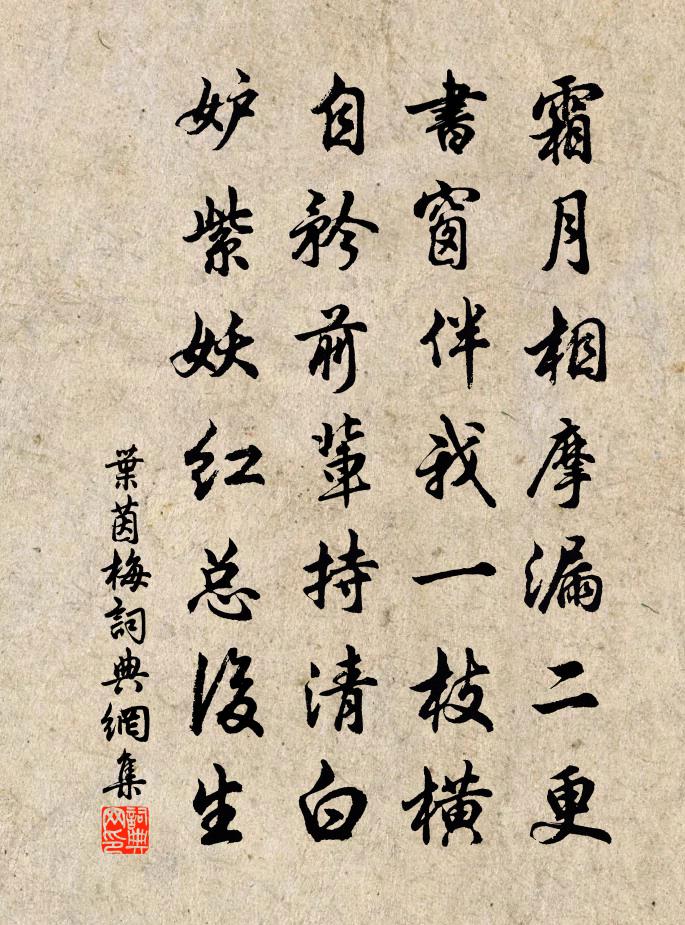 霜月相摩漏二更
書窗伴我一枝橫
自矜前輩持清白
妒紫妖红总後生
葉茵梅詞典網集
詞典网印